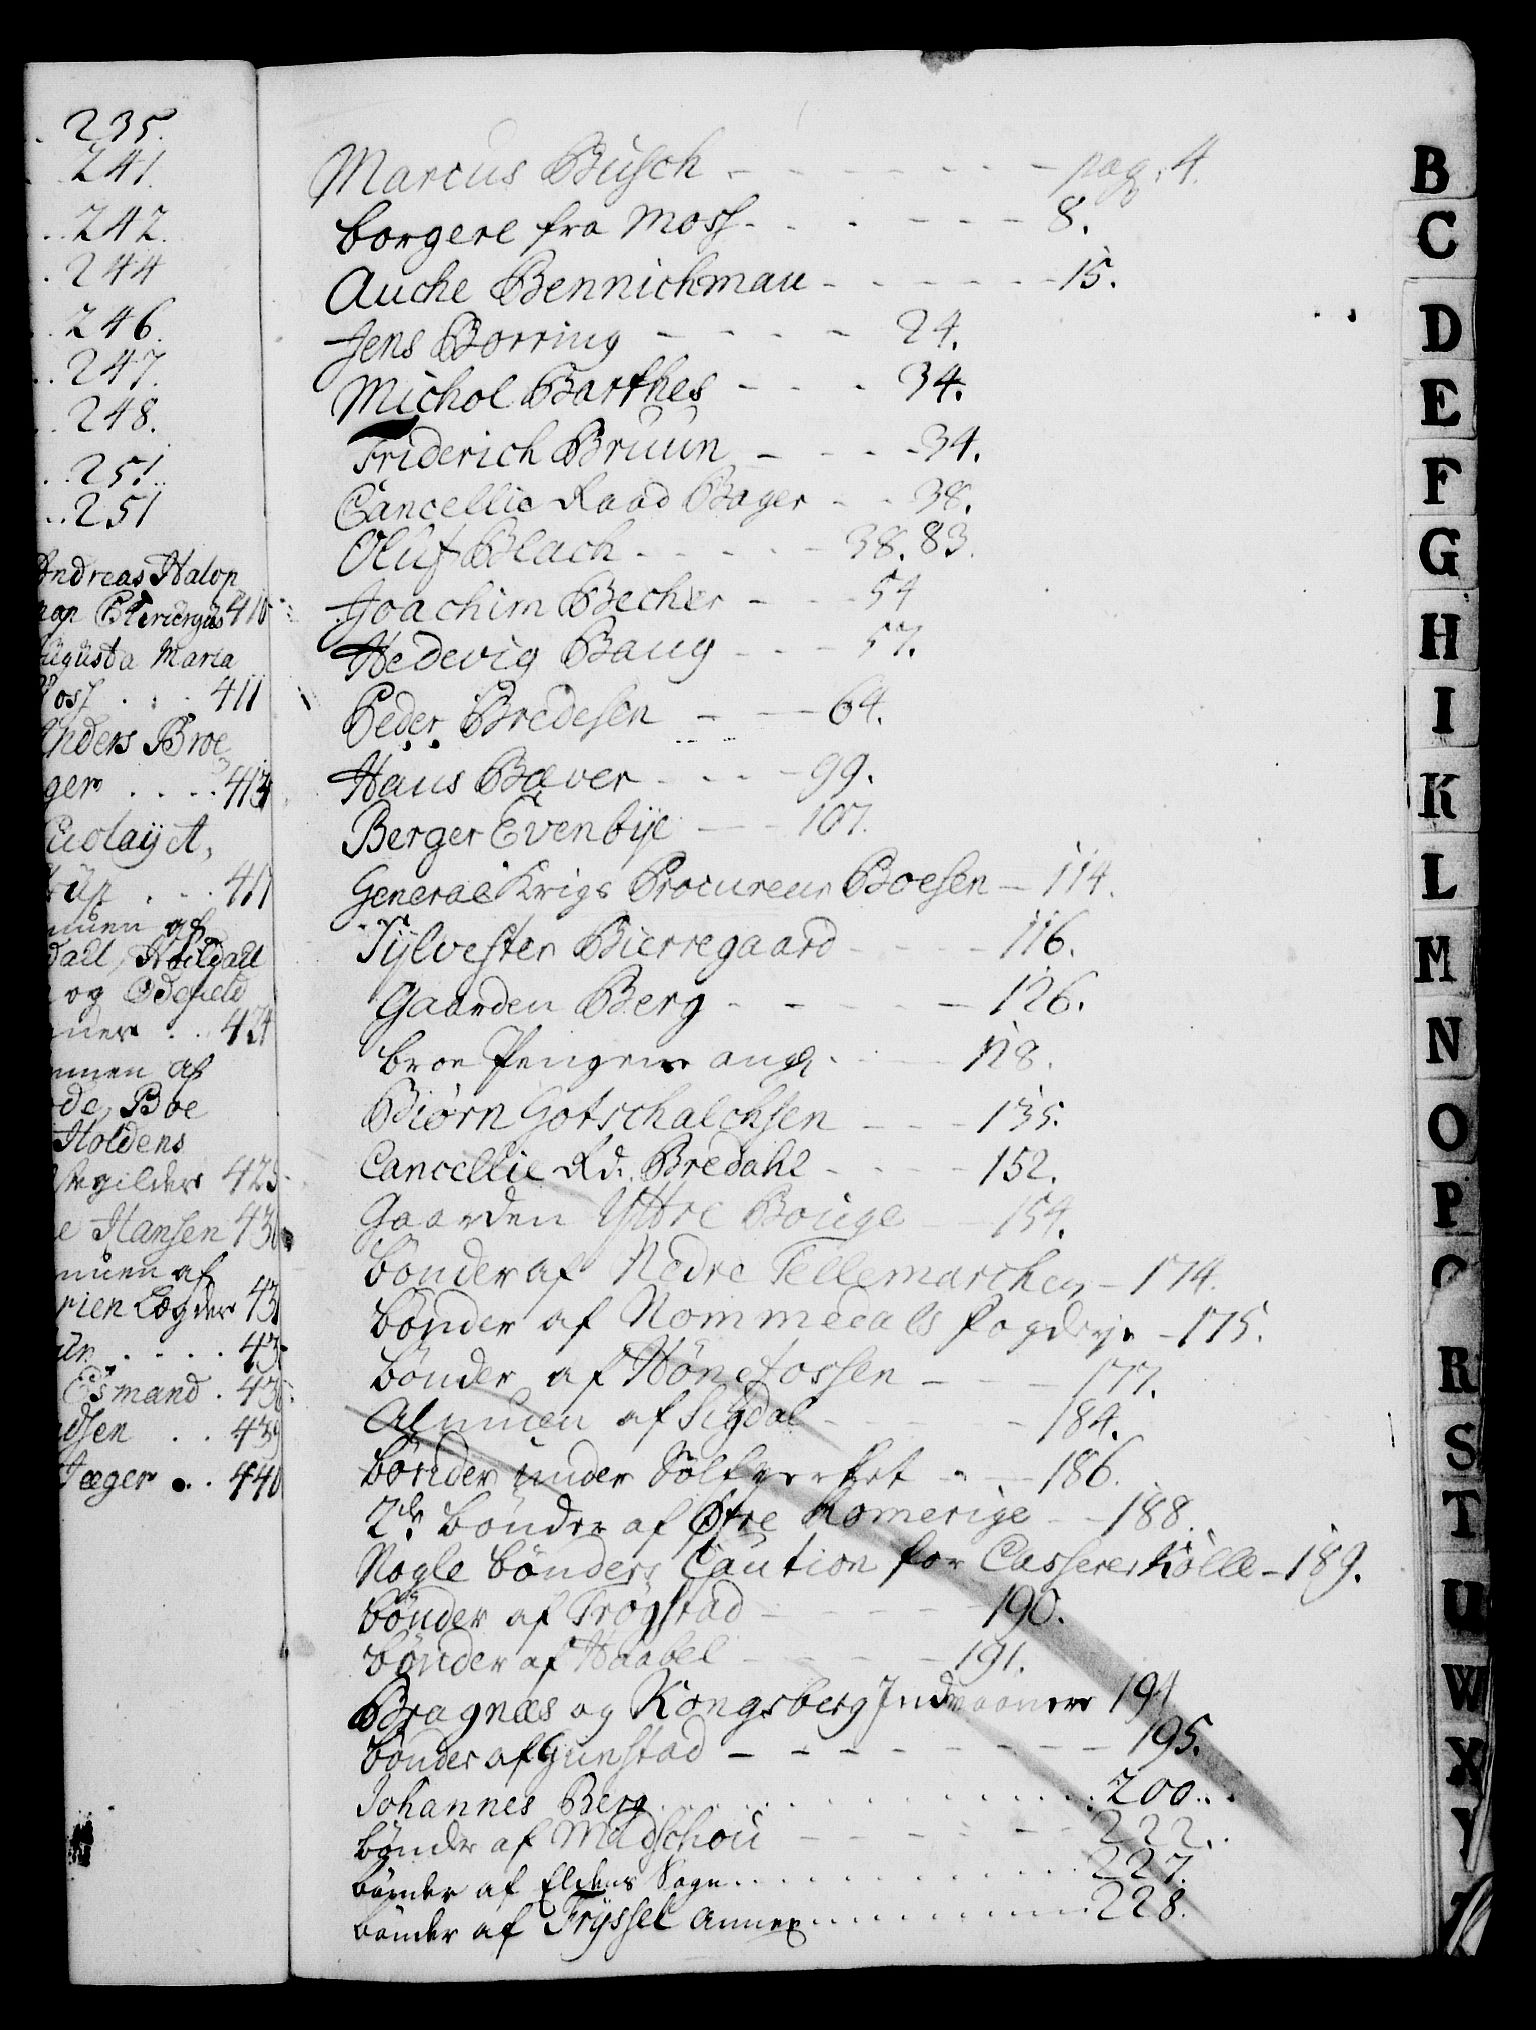 235.
241.
242.
244
246.
247.
248.
251.
251
Andreas Halop
410
Augusta Maria
411
Anders Broe
ger . . . . 413
417
nuen af
dall, Halldall
og Odefield
ner . . 424
nuen af
de, Boe
Holdens
425
e Hansen 430
nuen af
rien Lægder 43
43
Esmand . 43
dsen . . 439
Jæger . . 440
Marcus Busch - - - - - - pag. 4.
borgere fra Moss - - - - - 8.
Auche Bennichmau - - - - - - 15.
Jens Borring - - - - - 24.
Michel Barthes - - - 34.
Friderich Bruun - - - - 34.
Cancellie Raad Bager - - 38.
Oluf Blach - - - - - 38. 83.
Joachim Becher - - - 54
Hedevig Baug - - - 57.
Peder Bredesen - - - 64.
Haus Bæver - - - - 99.
Berger Evenbye - - - 107.
General Krigs Procureur Boesen - 114.
Sylvester Bierregaard - - - - 116.
Gaarden Berg - - - - - 126.
broe Pengene ang. - - - 128.
Biørn Gotschalchsen - - - 135.
Cancellie Rd. Bredahl - - - - 152.
Gaarden Yttre Bouge - - 154.
bønder af Nedre Tellemarchen - 174.
bønder af Nommedals fogderye - 175.
bønder af Hønefossen - - - 177.
Almuen af Sigdal - - - - 184.
bønder under Sølfverket - - 186.
2de bønder af Øfre Romerige - - 188.
Nogle bønders Caution for Casserer Kølle - 189.
bønder af Trøgstad - - - - - 190.
bønder af Haabel - - - - - 191.
Bragnæs og Kongsberg Indvaanere 194
bønder af Gunstad - - - - - - - - 195.
Johannes Berg . . . . . . . . . . . 200. . .
bønder af Madschou - - - - - - - 222. .
bønder af Eldens Sogn . . . . . . . . . . . 227.
bønder af Tryssel Annex . . . . . . . . . . 228.
B
C
D
E
F
G
H
I
K
L
M
N
O
P
R
S
T
U
W
X
Y